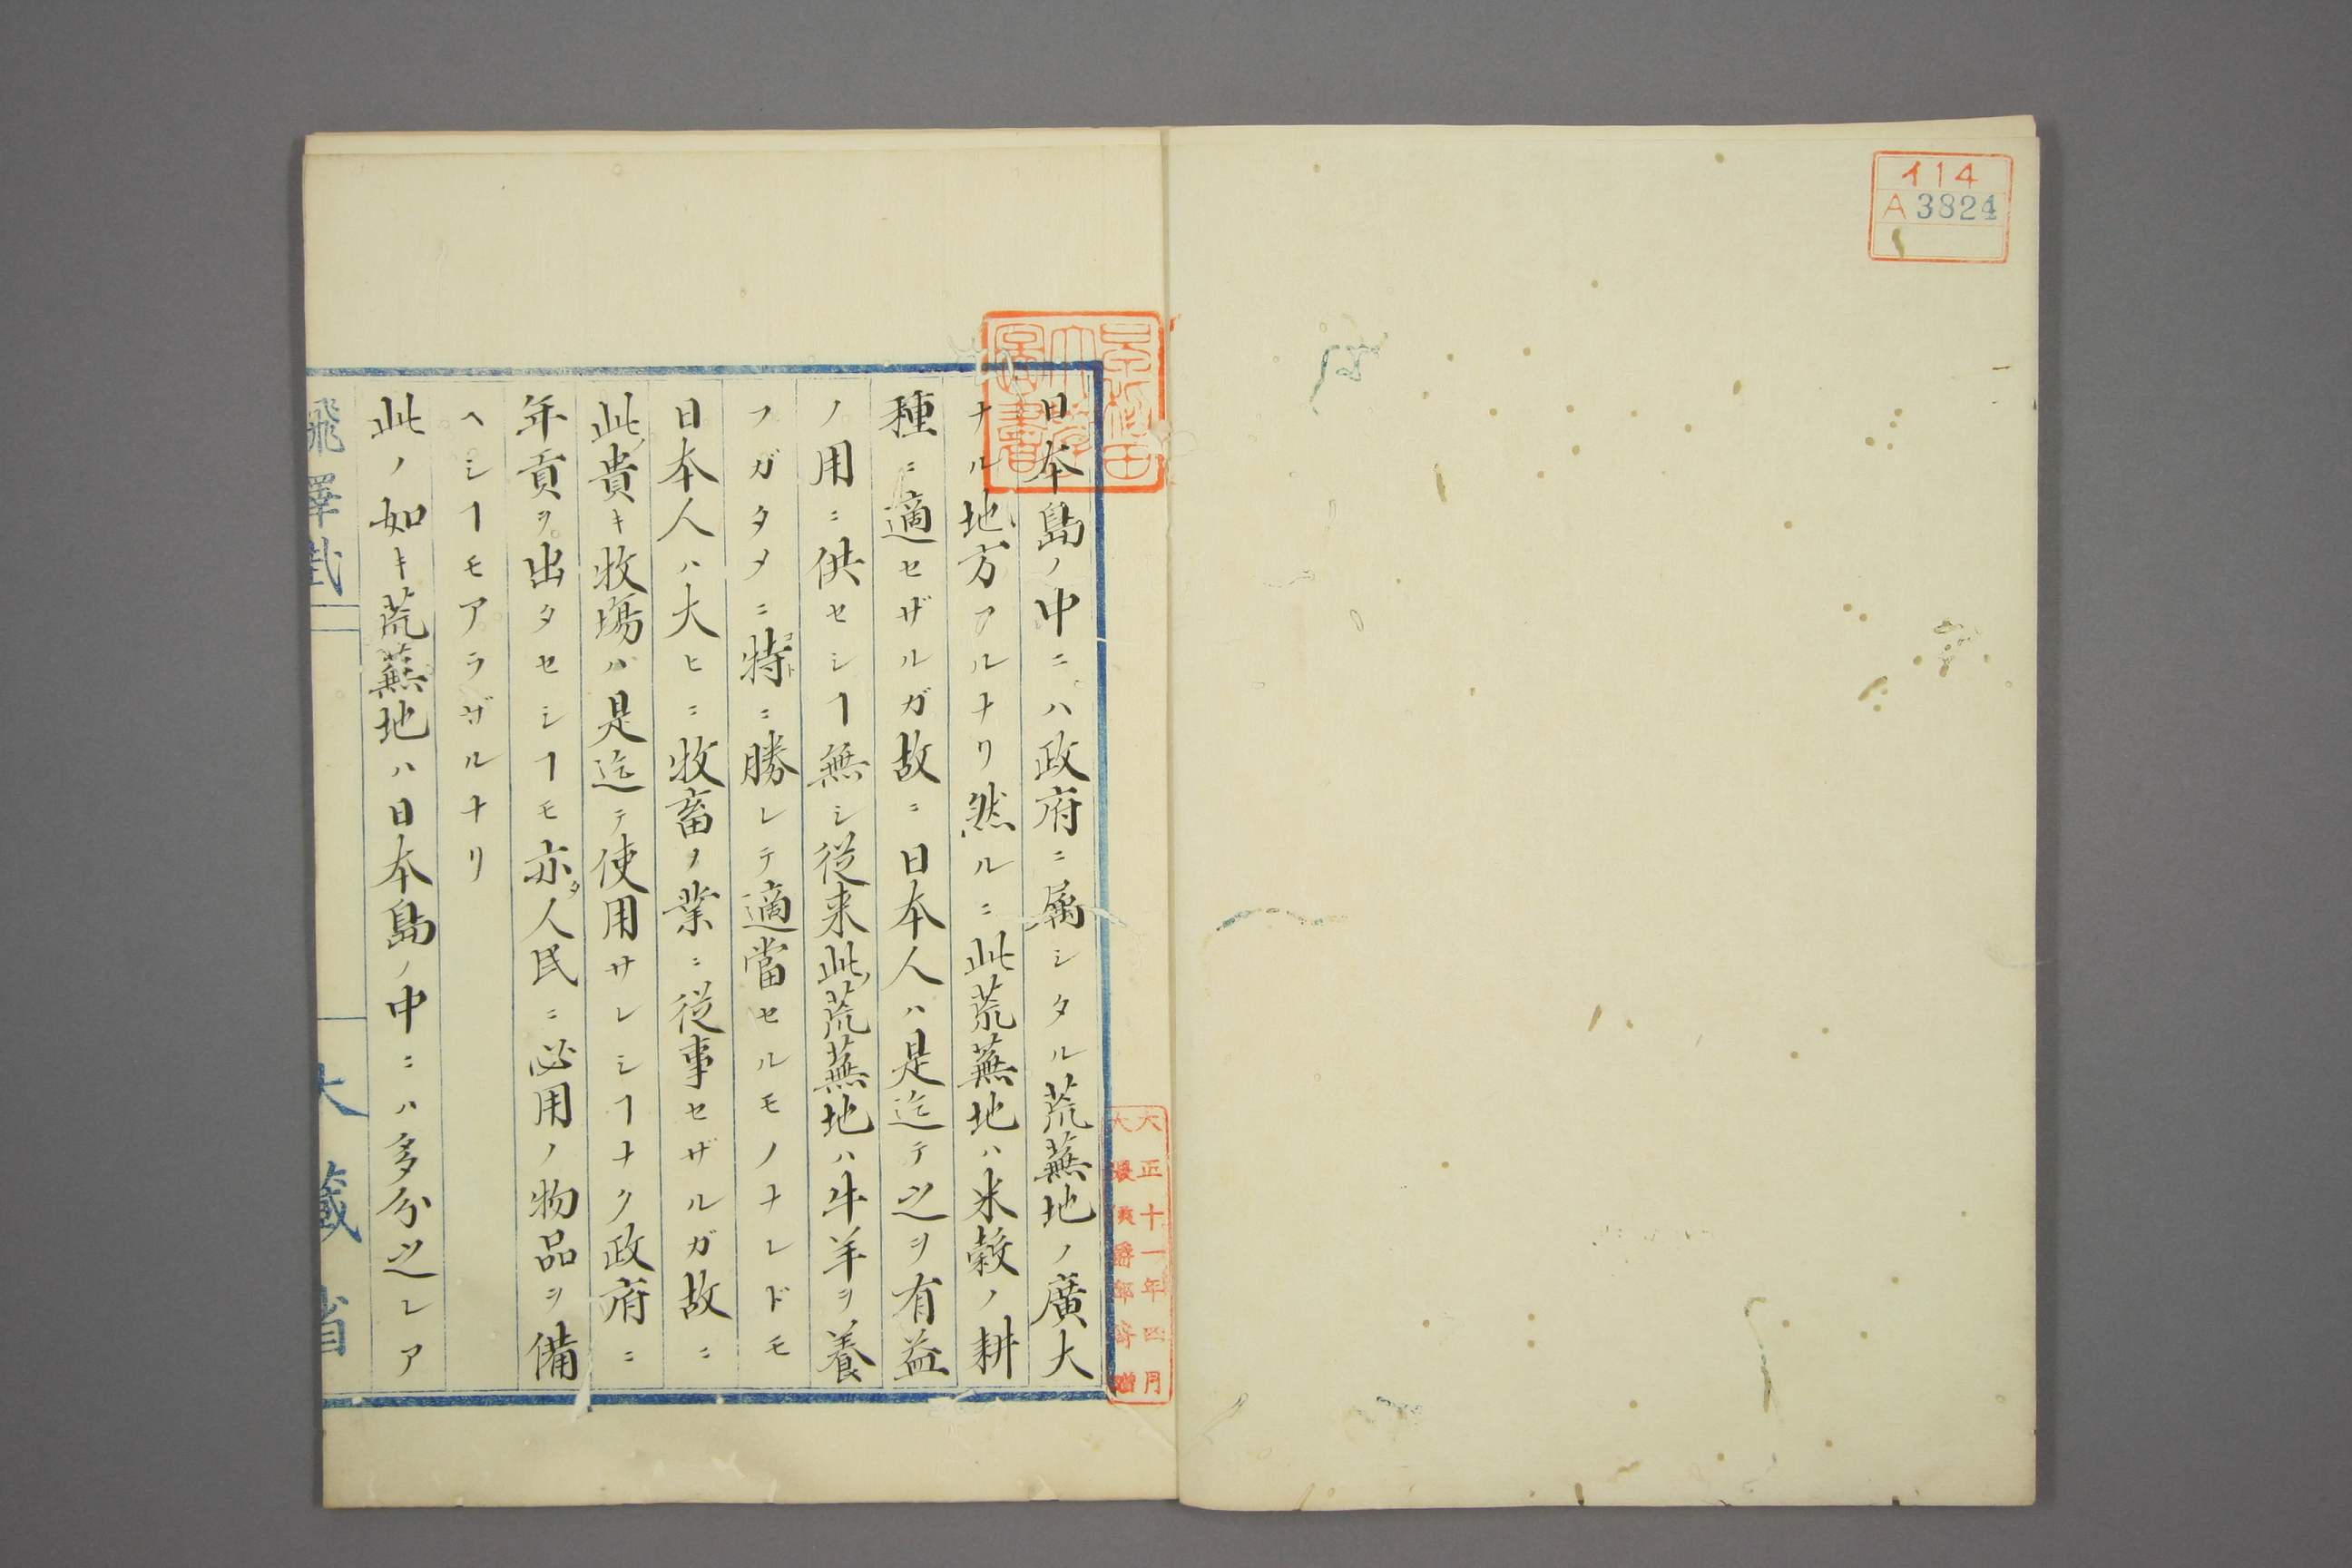 イ14
A3824
早稲田
大学
図書
大正十一年四月
大隈侯爵邸寄贈
日本島ノ中ニハ政府ニ属シタル荒蕪地ノ廣大
ナル地方アルナリ然ルニ此荒蕪地ハ米穀ノ耕
種ニ適セザルガ故ニ日本人ハ是迄テ之ヲ有益
ノ用ニ供セシヿ無シ従来此荒蕪地ハ牛羊ヲ養
フガタメニ特ニ勝レテ適當セルモノナレドモ
日本人ハ大ヒニ牧畜ノ業ニ従事セザルガ故ニ
此貴キ牧場ハ是迄テ使用サレシヿナク政府ニ
年貢ヲ出タセシヿモ亦タ人民ニ必用ノ物品ヲ備
ヘシヿモアラザルナリ
此ノ如キ荒蕪地ハ日本島ノ中ニハ多分之レア
大藏省